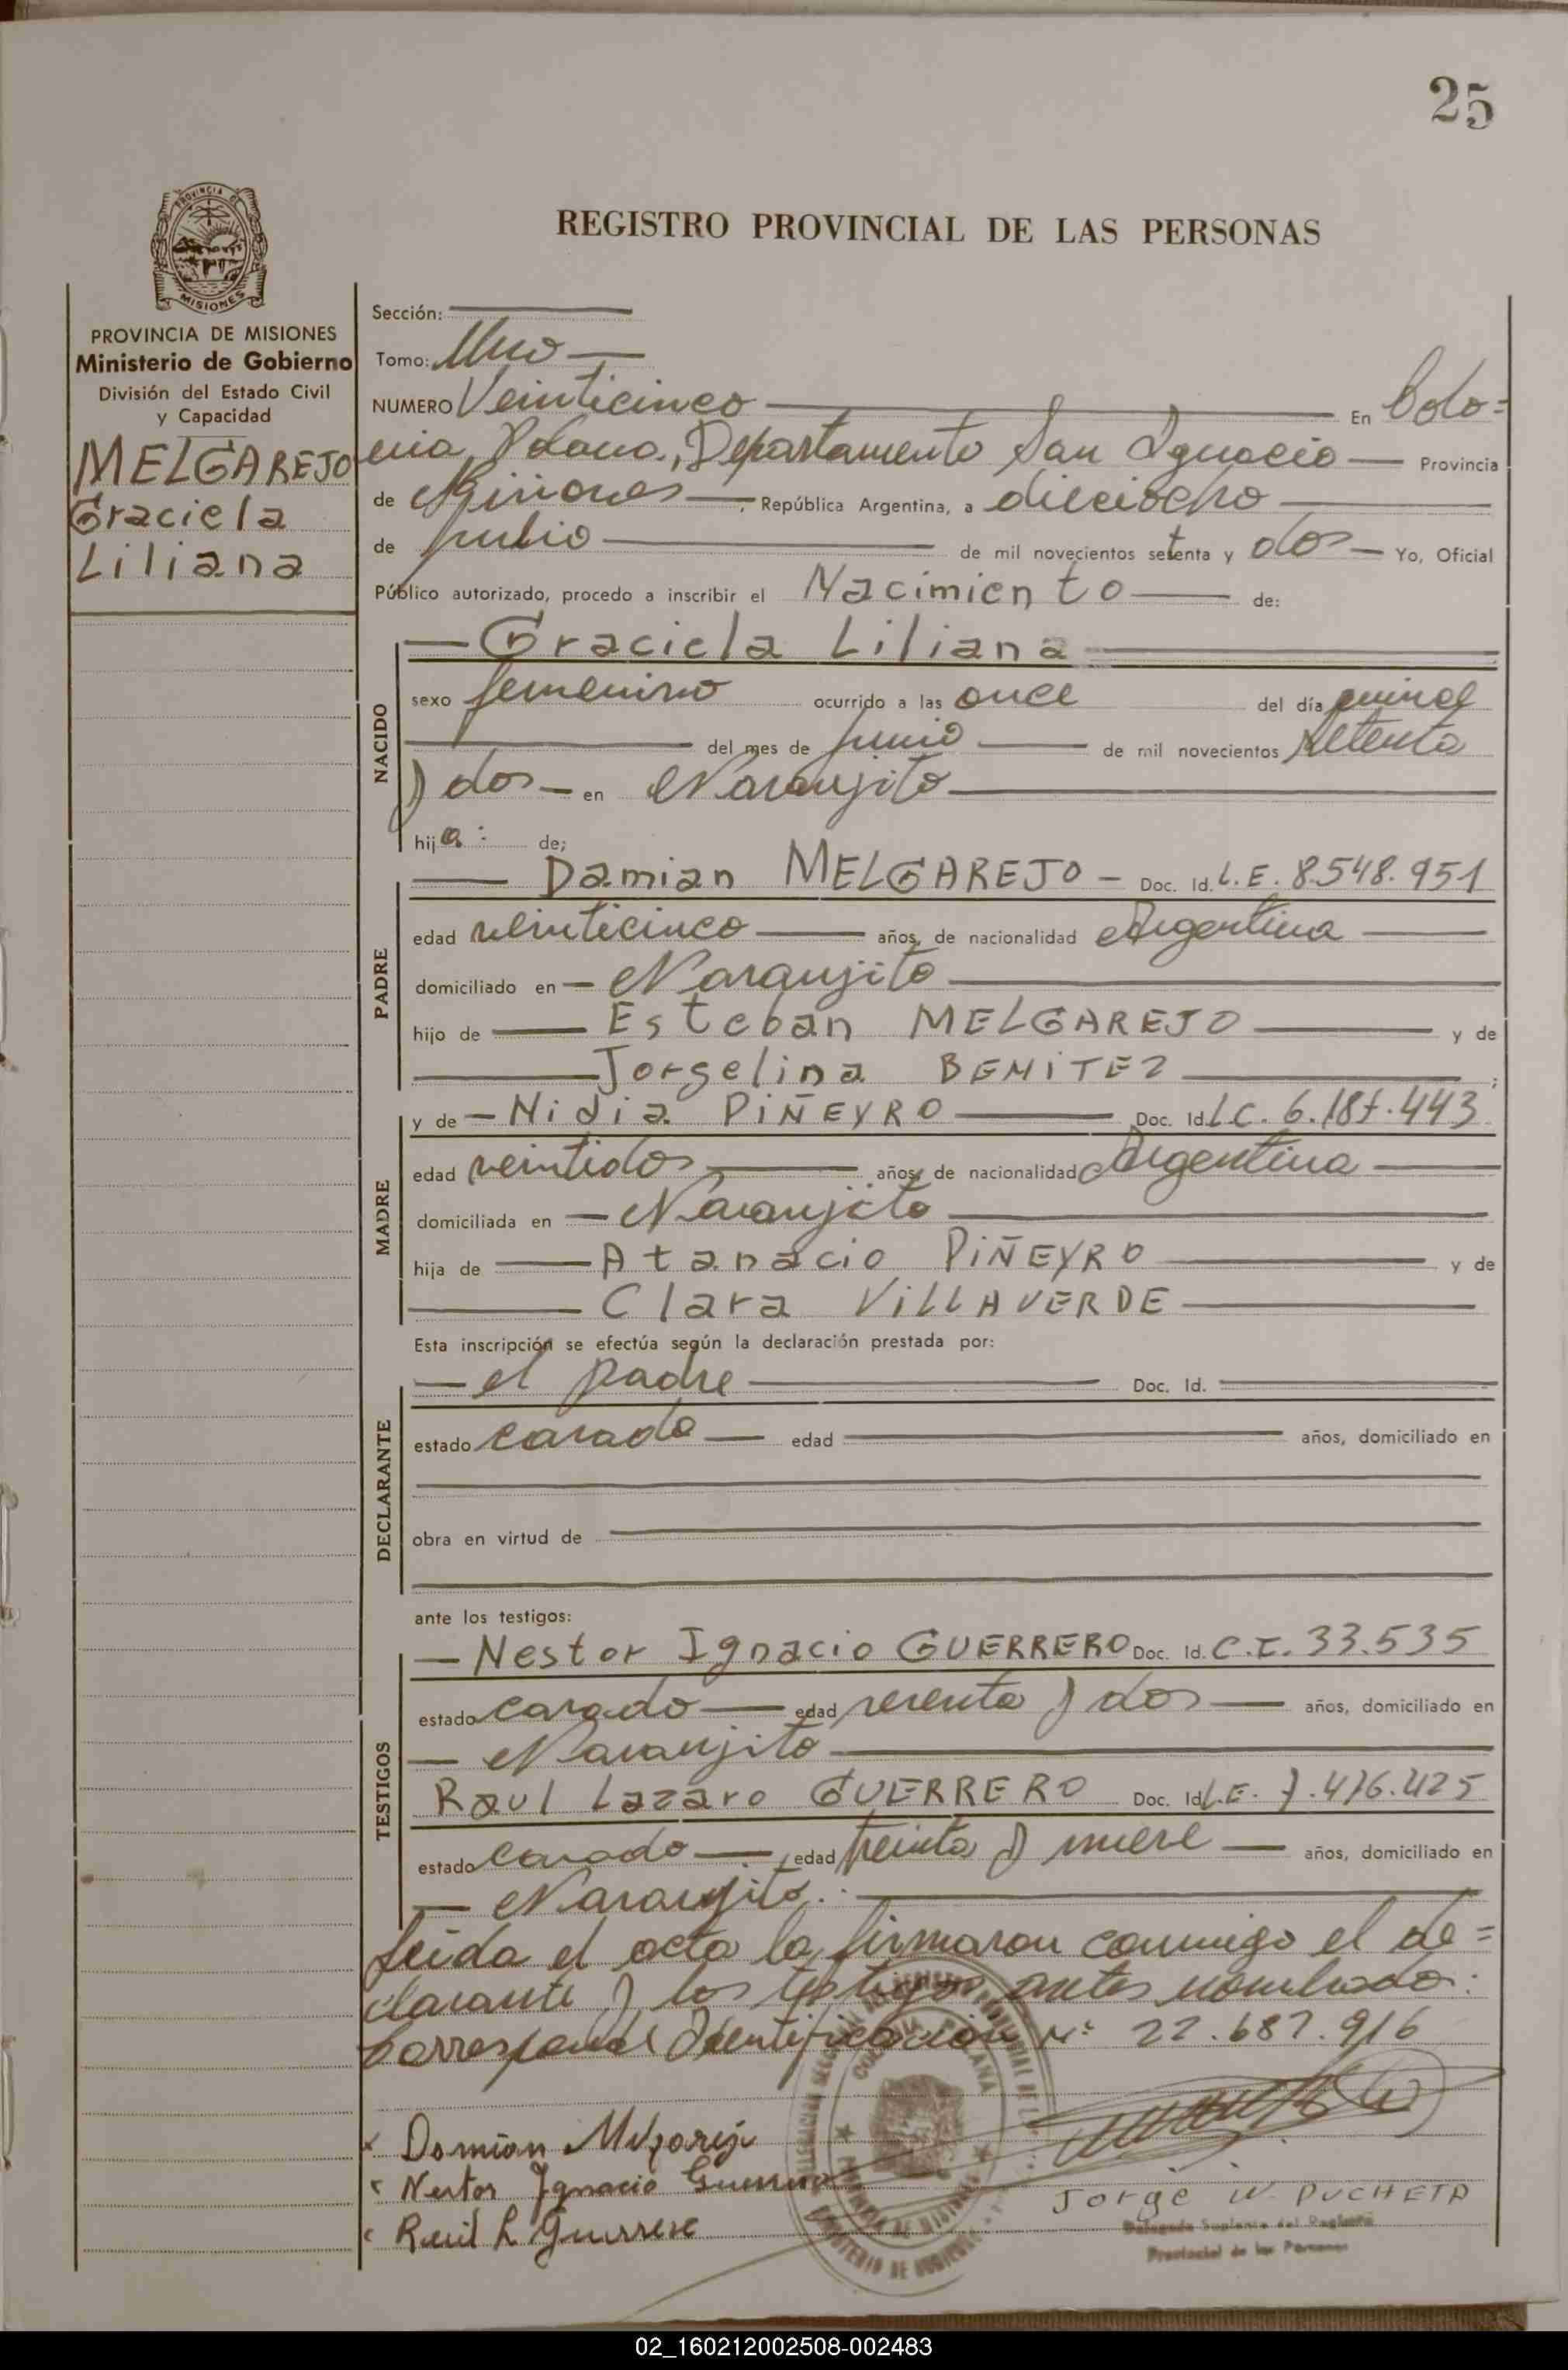 25
PROVINCIA DE
MISIONES
REGISTRO PROVINCIAL DE LAS PERSONAS
PROVINCIA DE MISIONES
Ministerio de Gobierno
División del Estado Civil
y Capacidad
MELGAREJO
Graciela
Liliana
Sección:
Tomo: Uno
NUMERO Veinticinco En Colo=
nia Polana, Departamento San Ignacio Provincia
de Misiones, República Argentina, a dieciocho
de julio de mil novecientos setenta y dos Yo, Oficial
Público autorizado, procedo a inscribir el Nacimiento de:
NACIDO
Graciela Liliana
sexo femenino ocurrido a las once del día quince
del mes de junio de mil novecientos setenta
y dos en Naranjito
hija: de;
PADRE
Damian MELGAREJO Doc. Id. L.E. 8.548.951
edad veinticinco años, de nacionalidad Argentina
domiciliado en Naranjito
hijo de Esteban MELGAREJO y de
Jorgelina BENITEZ ;
MADRE
y de Nidia PIÑEYRO Doc. Id. L.C. 6.187.443
edad veintidos años, de nacionalidad Argentina
domiciliada en Naranjito
hija de Atanacio PIÑEYRO y de
Clara VILLAVERDE
Esta inscripción se efectúa según la declaración prestada por:
DECLARANTE
el padre Doc. Id.
estado casado edad años, domiciliado en
obra en virtud de
ante los testigos:
TESTIGOS
Nestor Ignacio GUERRERO Doc. Id. C.I. 33.535
estado casado edad sesenta y dos años, domiciliado en
Naranjito
Raul Lazaro GUERRERO Doc. Id. L.E. 7.476.425
estado casado edad treinta y nueve años, domiciliado en
Naranjito.
Leida el acta la firmaron conmigo el de=
clarante y los testigos antes nombrados.
Corresponde Identificación Nº 22.687.916
Damian Melgarejo
Nestor Ignacio Guerrero
Raul L Guerrero
Jorge W. PUCHETA
Delegado Suplente del Registro
Provincial de las Personas
02_160212002508-002483